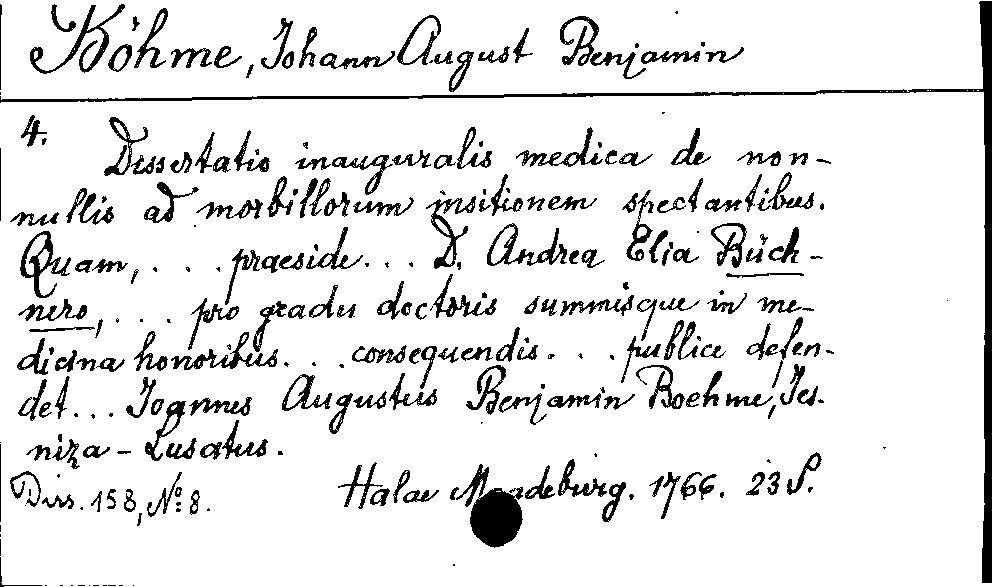 Böhme, Johann August Benjamin
4.
Dissertatio inauguralis medica de non-
nullis ad morbillorum insitionem spectantibus.
Quam, . . . praeside . . . D. Andrea Elia Büch-
nero, . . . pro gradu doctoris summisque in me-
dicina honoribus . . . consequendis . . . publice defen-
det . . . Joannes Augustus Benjamin Boehme, Jes-
niza-Lusatus.
Diss. 158, No. 8. Halae Magdeburg. 1766. 23 S.